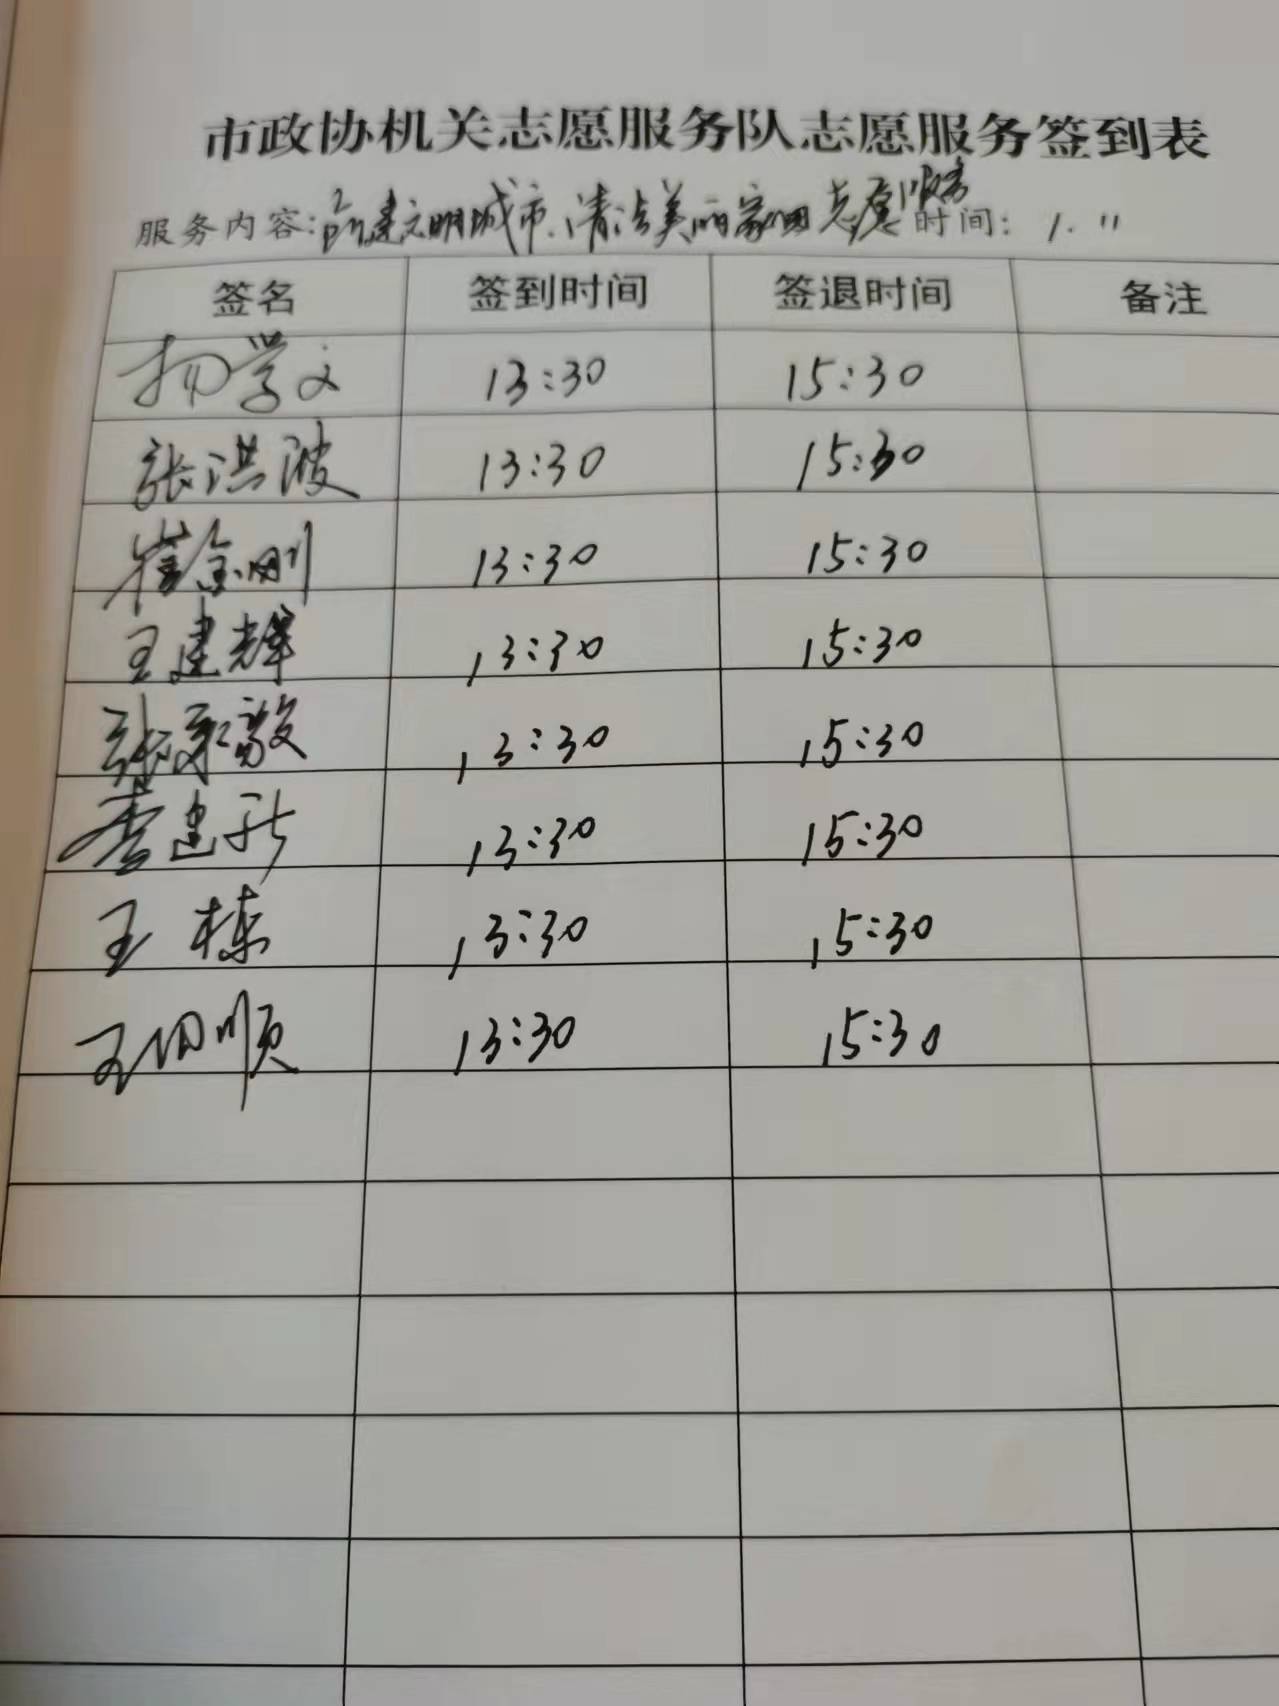 市政协机关志愿服务队志愿服务签到表
服务内容:创建文明城市.清洁美丽家园志愿服务 时间: 1.11
签名 签到时间 签退时间 备注
杨学文 13:30 15:30
张洪波 13:30 15:30
崔金刚 13:30 15:30
王建辉 13:30 15:30
张 13:30 15:30
李建新 13:30 15:30
王栋 13:30 15:30
王 顺 13:30 15:30